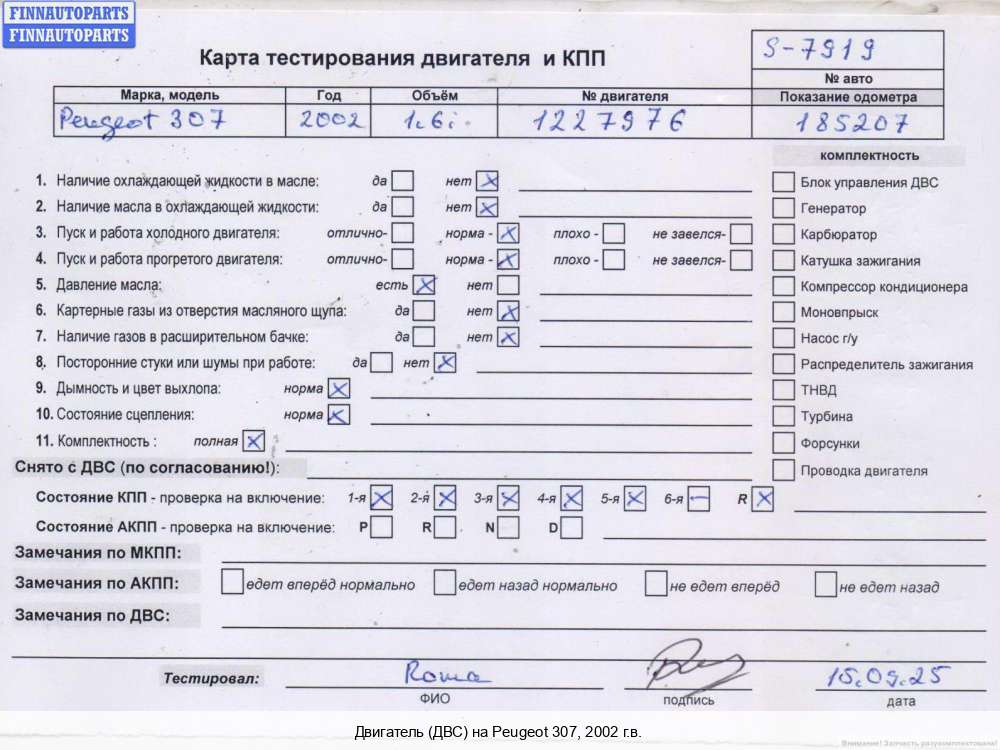 FINNAUTOPARTS
FINNAUTOPARTS
Карта тестирования двигателя и КПП
S-7919
№ авто
Марка, модель Год Объём № двигателя Показание одометра
Peugeot 307 2002 1.6i 1227976 185207
комплектность
1. Наличие охлаждающей жидкости в масле: да нет
Блок управления ДВС
2. Наличие масла в охлаждающей жидкости: да нет
Генератор
3. Пуск и работа холодного двигателя: отлично- норма - плохо - не завелся-
Карбюратор
4. Пуск и работа прогретого двигателя: отлично- норма - плохо - не завелся-
Катушка зажигания
5. Давление масла: есть нет
Компрессор кондиционера
6. Картерные газы из отверстия масляного щупа: да нет
Моновпрыск
7. Наличие газов в расширительном бачке: да нет
Насос г/у
8. Посторонние стуки или шумы при работе: да нет
Распределитель зажигания
9. Дымность и цвет выхлопа: норма
ТНВД
10. Состояние сцепления: норма
Турбина
11. Комплектность : полная
Форсунки
Снято с ДВС (по согласованию!):
Проводка двигателя
Состояние КПП - проверка на включение: 1-я 2-я 3-я 4-я 5-я 6-я R
Состояние АКПП - проверка на включение: P R N D
Замечания по МКПП:
Замечания по АКПП: едет вперёд нормально едет назад нормально не едет вперёд не едет назад
Замечания по ДВС:
Тестировал: Roma 15.09.25
ФИО подпись дата
Двигатель (ДВС) на Peugeot 307, 2002 г.в.
Внимание! Запчасть разукомплектована!